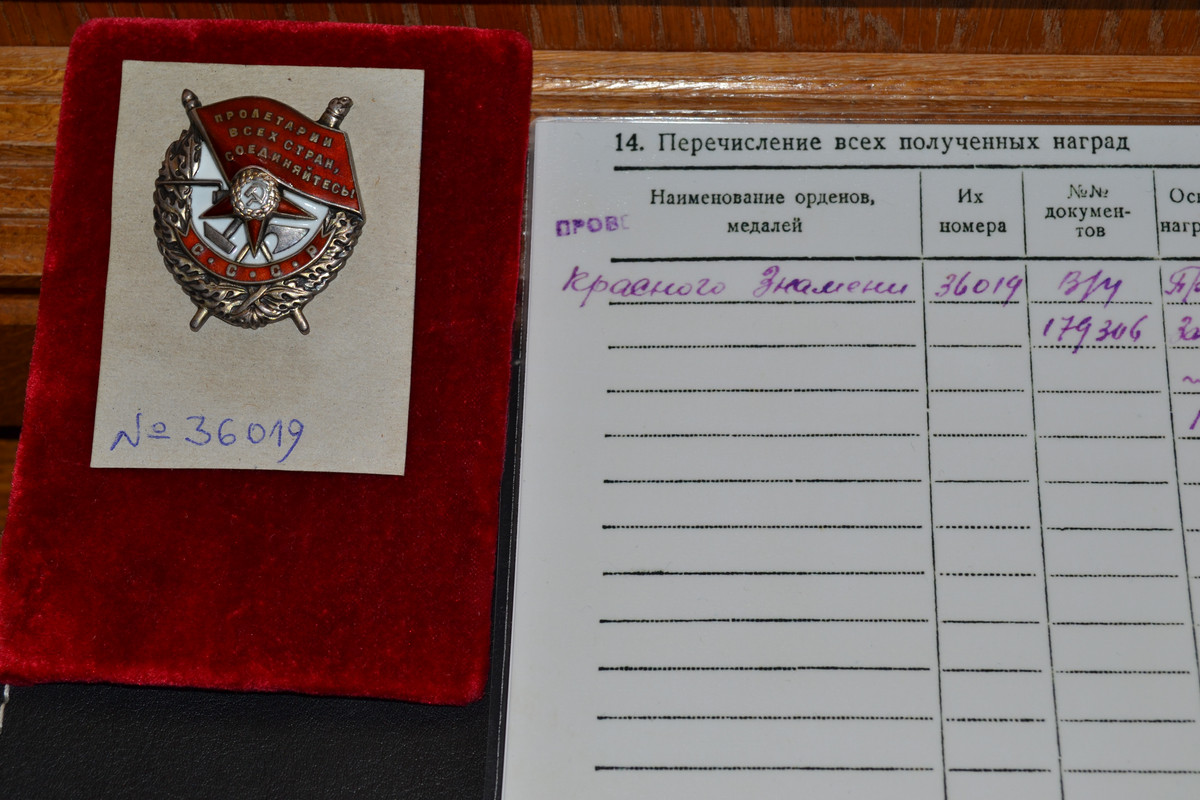 ПРОЛЕТАРИИ
ВСЕХ СТРАН,
СОЕДИНЯЙТЕСЬ!
С.С.С.Р
№ 36019
14. Перечисление всех полученных наград
Наименование орденов,
медалей
Их
номера
№№
докумен-
тов
Ос
нагр
ПРОВ
Красного Знамени 36019
179306